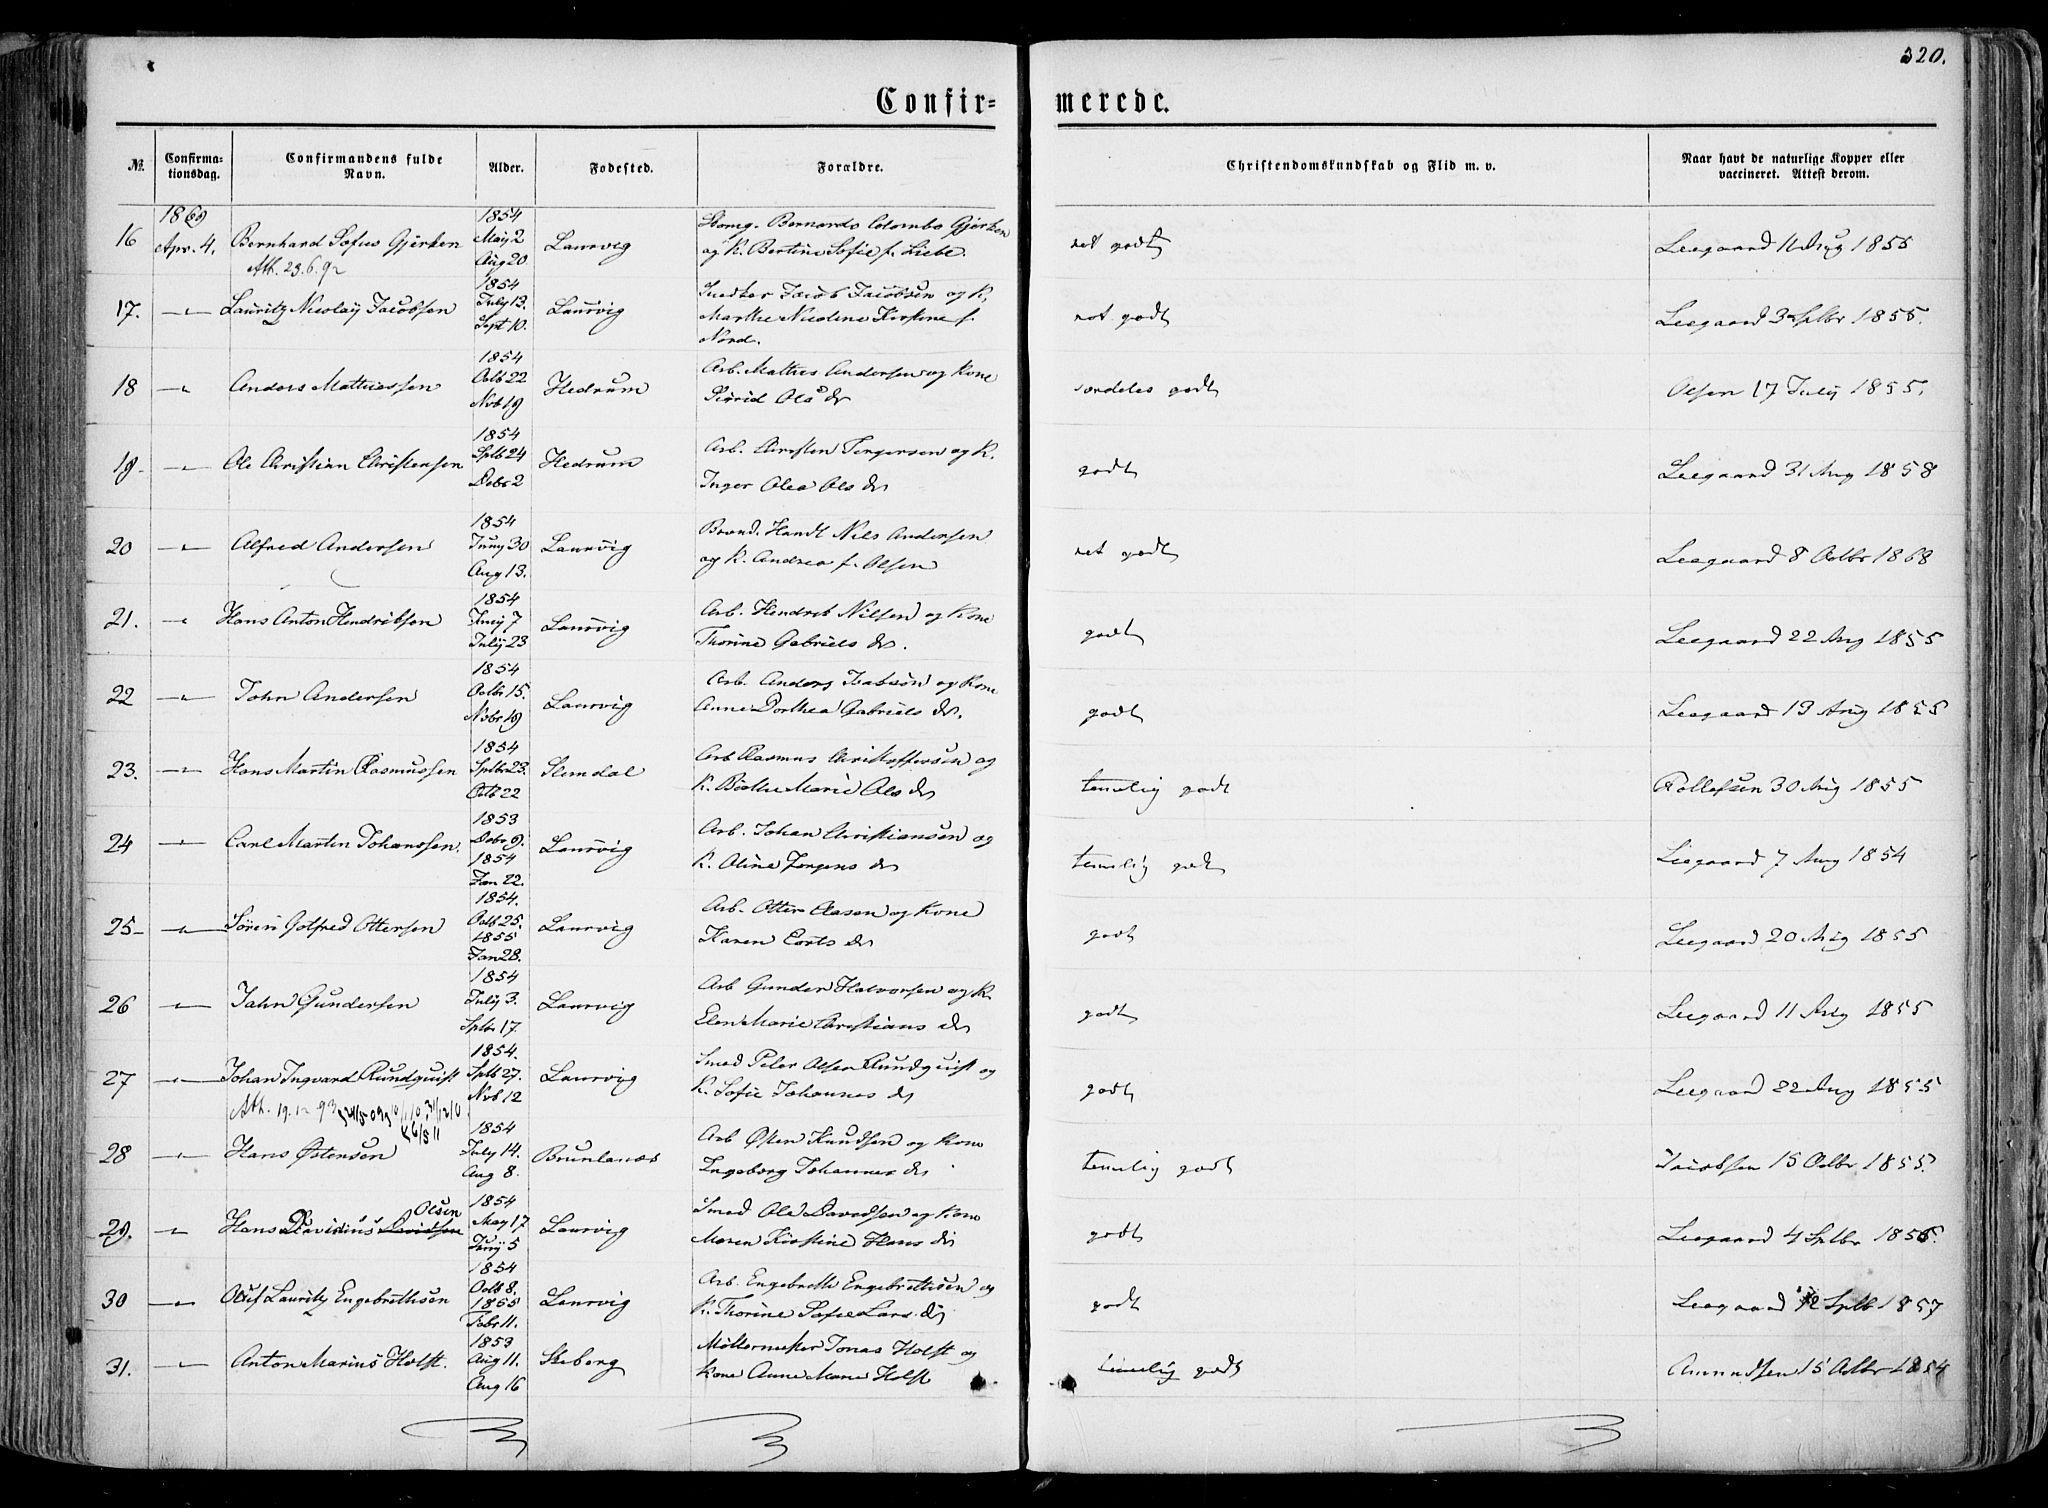 320.
Confir-merede.
No.
Confirma-
tionsdag.
Confirmandens fulde
Navn.
Alder.
Fødested.
Forældre.
Christendomskundskab og Flid m. v.
Naar havt de naturlige Kopper eller
vaccineret. Attest derom.
1869
16 Apr. 4. Bernhard Sofus Gjerken 1854 Maij 2 Aug 20 Laurvig Bernardo Colombo Gjerken ret godt Leegaard 11 Aug 1855
Att. 23.6.92 og K. Bertine Sofie f. Liebe.
17. -"- Lauritz Nicolaij Jacobsen 1854 July 13. Sept 10. Laurvig Snedker Jacob Jacobsen og K. ret godt Leegaard 3 Sptbr 1855.
Marthe Nicoline Kirstine f.
Nord.
18 -"- Anders Mathiessen 1854 Octb 22 Nvb 19 Hedrum Arb. Mathies Andersen og Kone særdeles godt Olsen 17 July 1855.
Sigrid Ols dr
19 -"- Ole Christian Christensen 1854 Sptb 24 Debr 2 Hedrum Arb. Christen Torgersen og K. godt Leegaard 31 Aug 1858
Inger Olea Ols dr
20 -"- Alfred Andersen 1854 Juny 30 Aug 13. Laurvig Brænd. Handl Nils Andersen ret godt Leegaard 8 Octbr 1868
og K. Andrea f. Olsen
21. -"- Hans Anton Hendriksen 1854 Juny 7 July 23 Laurvig Arb. Hendrik Nilsen og Kone godt Leegaard 22 Aug 1855
Thorine Gabriels dr.
22 -"- John Andersen 1854 Octbr 15. Nvbr 19 Laurvig Arb. Anders Isaksøn og Kone godt Leegaard 13 Aug 1855
Anne Dorthea Gabriels dr.
23. -"- Hans Martin Rasmussen 1854 Sptbr 23. Octb 22 Slemdal Arb Rasmus Christoffersen og temelig godt Rollefsen 30 Aug 1855
K. Birthe Marie Ols dr
24 -"- Carl Martin Johanssen. 1853 Debr 9. 1854 Jan 22. Laurvig Arb. Johan Christiansen og temelig godt Leegaard 7 Aug 1854
K. Oline Jørgens dr
25 -"- Søren Gotfred Ottersen 1854. Octb 25. 1855 Jan 28. Laurvig Arb. Otter Aasen og Kone godt Leegaard 20 Aug 1855
Karen Corts dr
26 -"- Jahn Gundersen 1854 July 3. Sptbr 17. Laurvig Arb Gunder Halvorsen og K. godt Leegaard 11 Aug 1855
Elen Marie Christians dr
27 -"- Johan Ingvard Rundquist 1854. Sptb 27. Nvb 12 Laurvig Smed Peter Olsen Rundquist og godt Leegaard 22 Aug 1855
Att. 19.12 93 K. Sofie Johannes dr
28 -"- Hans Østensen 1854 July 14. Aug 8. Brunlanæs Arb Østen Knudsen og Kone temelig godt Jacobsen 15 Octbr 1855.
Ingeborg Johannes dr
29. -"- Hans Davidius Davidsen Olsen 1854 May 17 Juny 5 Laurvig Smed Ole Davidsen og Kone godt Leegaard 4 Sptbr 1856.
Maren Kirstine Hans dr
30 -"- Oluf Lauritz Engebrethsen 1854 Octb 8. 1855 Febr 11. Laurvig Arb. Engebreth Engebrethsen og godt Leegaard 12 Sptb 1857
K. Thorine Sofie Lars dr
31. -"- Anton Marius Holst. 1853 Aug 11. Aug 16 Skeberg Møllermester Jonas Holst og temelig godt Amundsen 15 Octbr 1854
Kone Anne Marie Holst